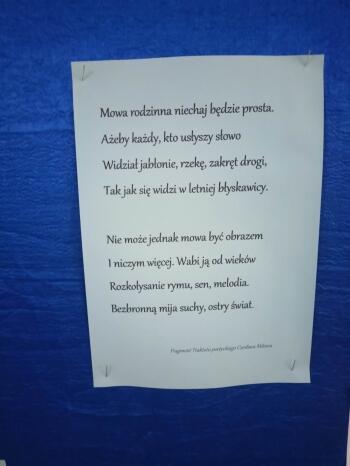 Mowa rodzinna niechaj będzie prosta.
Ażeby każdy, kto usłyszy słowo
Widział jabłonie, rzekę, zakręt drogi,
Tak jak się widzi w letniej błyskawicy.
Nie może jednak mowa być obrazem
I niczym więcej. Wabi ją od wieków
Rozkołysanie rymu, sen, melodia.
Bezbronną mija suchy, ostry świat.
Fragment Traktatu poetyckiego Czesława Miłosza